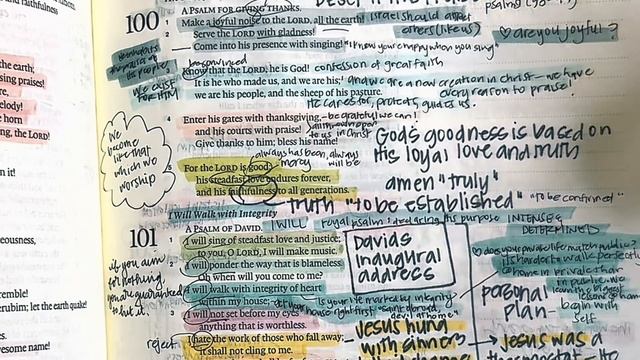 and faithfulness
the earth;
sing praises!
re,
elody!
he horn
ng, the LORD!
n it!
eousness,
remble!
erubim; let the earth quake!
100
A PSALM FOR GIVING THANKS.
Make a joyful noise to the LORD, all the earth! Israel should
2 Serve the LORD with gladness! others (like us)
are you joyful?
Come into his presence with singing! "I know you're happy when you sing"
be convinced
3 Know that the LORD, he is God! confession of great faith
It is he who made us, and we are his; and we are a new creation in Christ - we have
we are his people, and the sheep of his pasture. every reason to praise!
He cares for, protects, guides us.
4 Enter his gates with thanksgiving, - be grateful we can!
and his courts with praise!
to us in Christ
Give thanks to him; bless his name!
God's goodness is based on
His loyal love and truth
we become like that which we worship
always has been, always will be
mercy
5 For the LORD is good;
his steadfast love endures forever,
and his faithfulness to all generations.
amen "truly"
truth "to be established" "to be confirmed"
I Will Walk with Integrity
101
A PSALM OF DAVID. I WILL royal psalm: declaring his purpose INTENSE & DETERMINED
1 I will sing of steadfast love and justice;
to you, O LORD, I will make music.
2 I will ponder the way that is blameless.
Oh when will you come to me?
I will walk with integrity of heart
within my house;
3 I will not set before my eyes
anything that is worthless.
reject I hate the work of those who fall away;
it shall not cling to me.
David's inaugural address
if you aim for nothing you are guaranteed to hit it.
does your private life match public?
is your life marked by integrity
get your house right first "saint abroad, devil at home"
personal plan -
begin with self
Jesus hung with sinners
→ Jesus was a